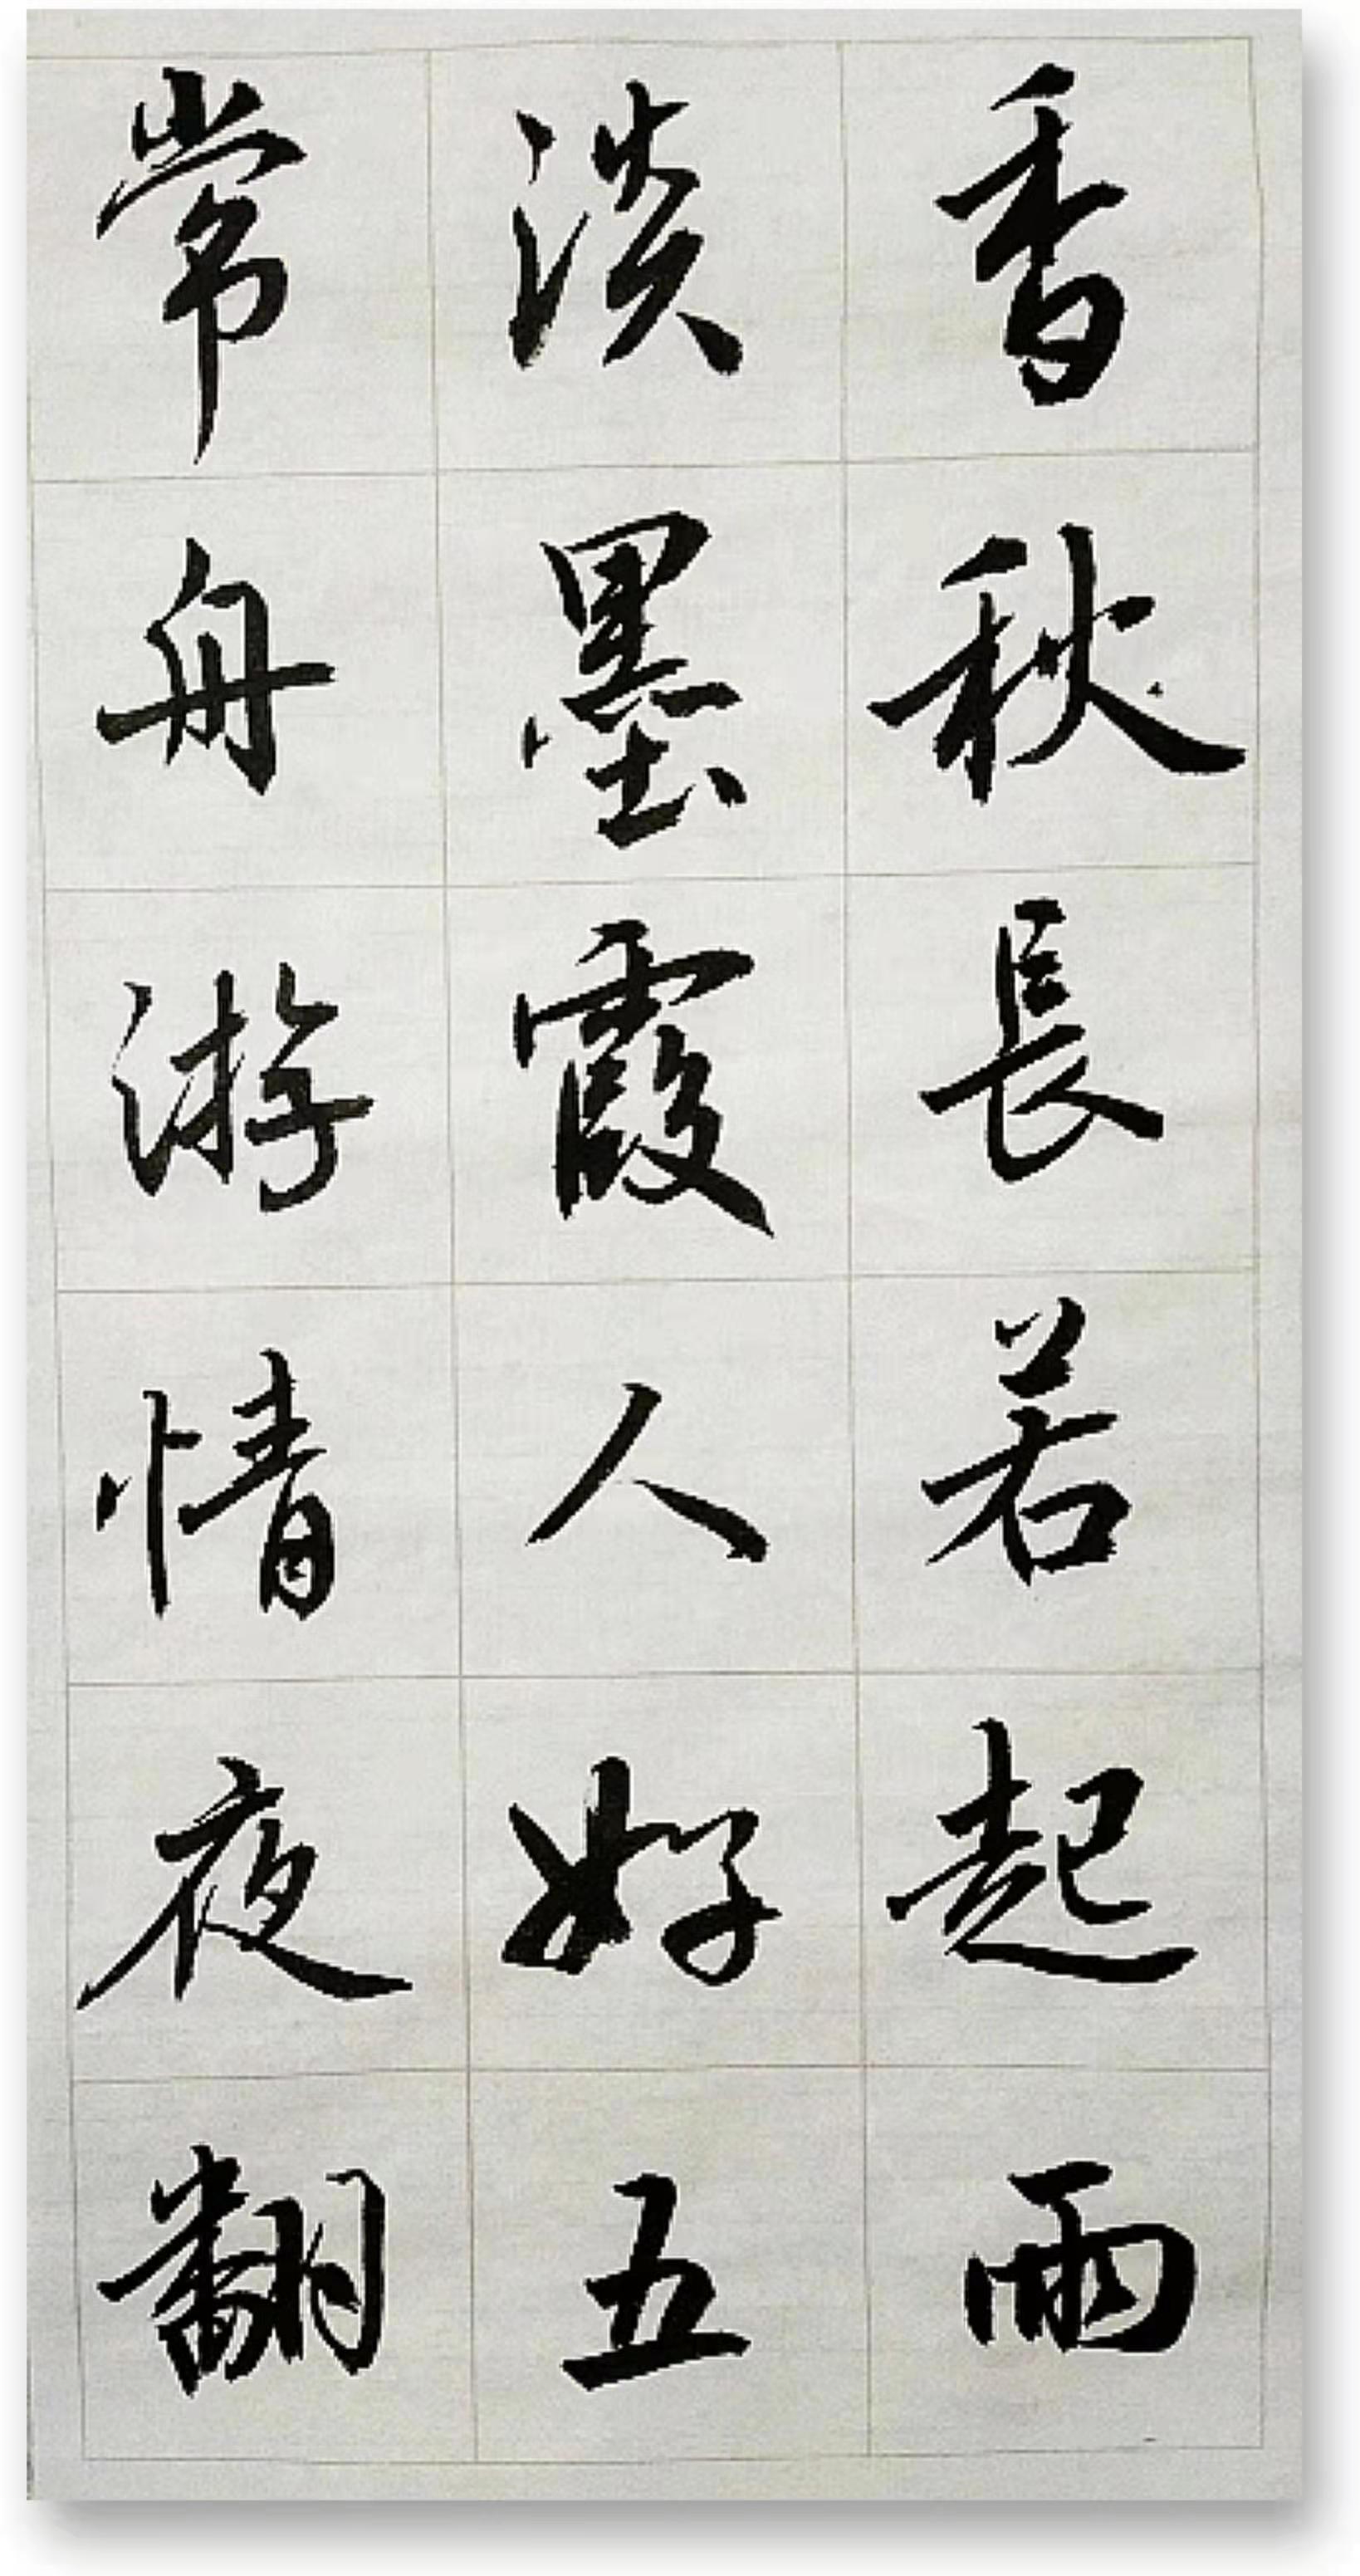 香秋長若起雨
淡墨霞人好五
常舟游情夜翻